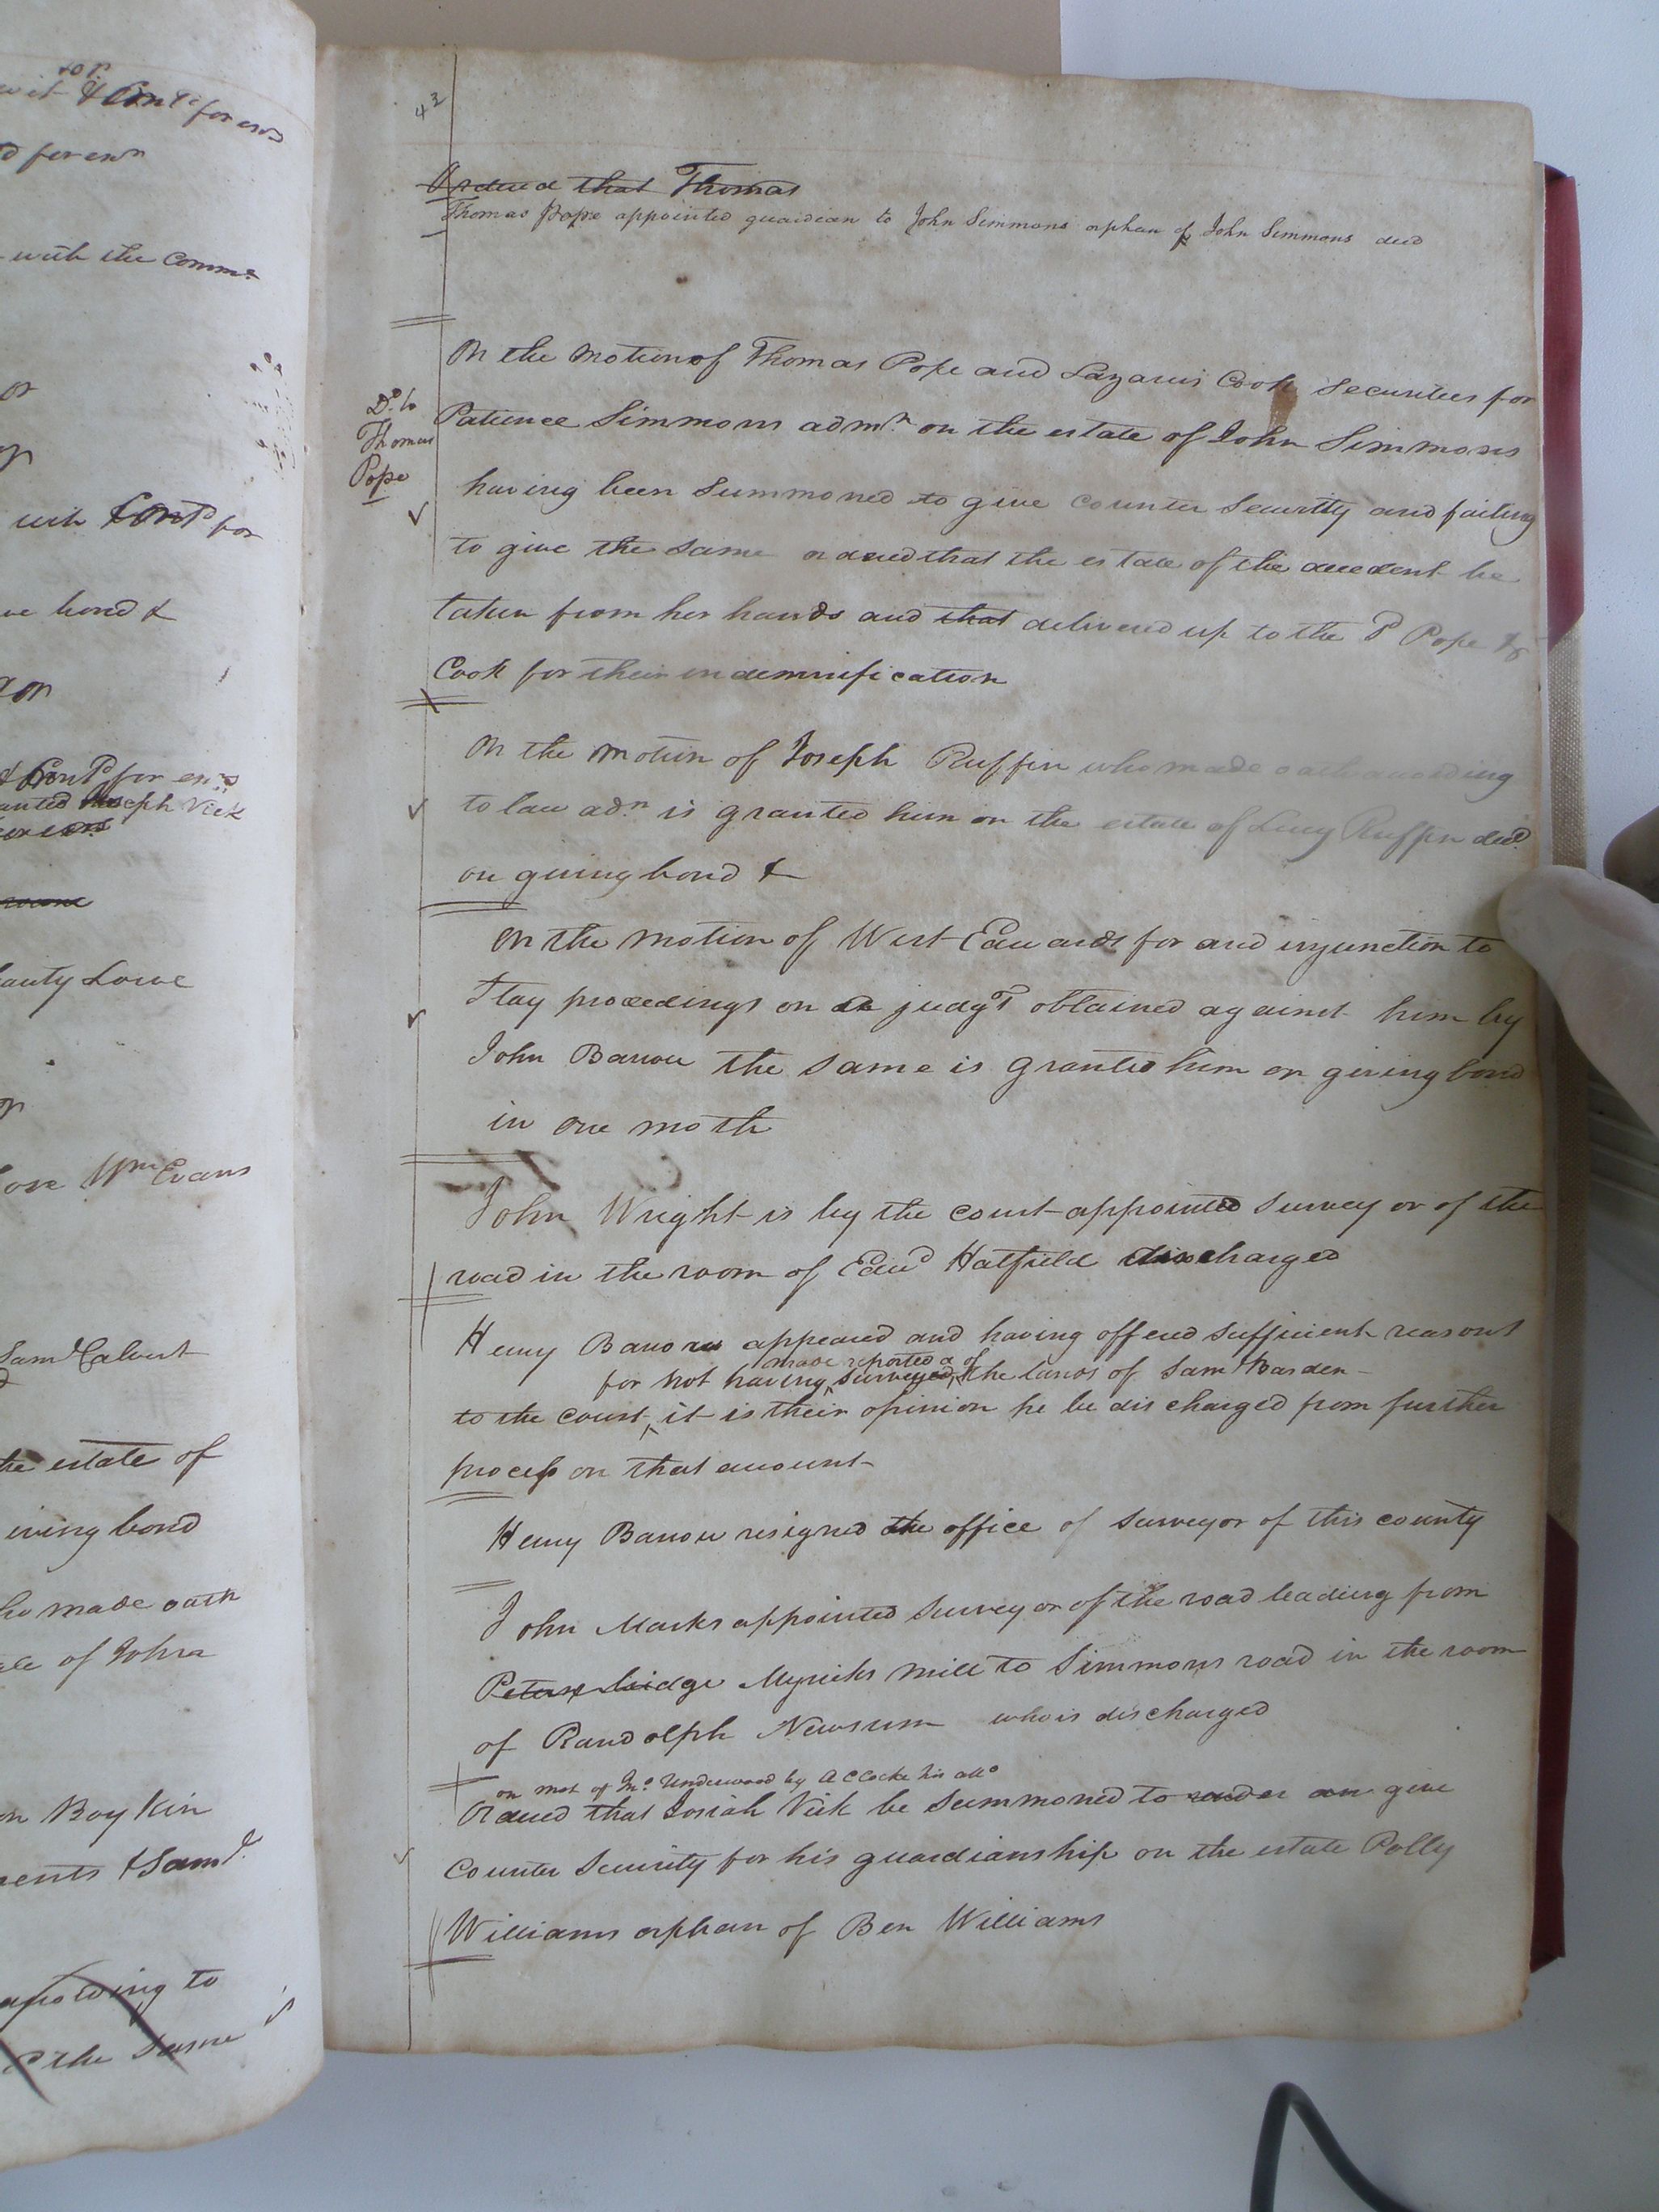 top
wit & Cont^d for ers
d for ex^n
with the Comm^s
or
with Cont^d for
ve bond &
& Cont^d for
anted Joseph Vick
Lowe
ove W^m Evans
Sam^l Calvert
the estate of
iving bond
ho made oath
ale of John
on Boykin
ments & Sam^l
according to
the Same
43
Ordered that Thomas
Thomas Pope appointed guardian to John Simmons orphan of John Simmons decd
On the motion of Thomas Pope and Lazarus Cook Securities for
D^o to
Thomas
Pope
Patience Simmons adm^x on the estate of John Simmons
having been Summoned to give Counter Security and failing
to give the Same ordered that the estate of the decedent be
taken from her hands and that delivered up to the s^d Pope &
Cook for their indemnification
On the motion of Joseph Ruffin who made oath according
to law ad^n is granted him on the estate of Lucy Ruffin decd
on giving bond &
On the motion of West Edwards for and injunction to
Stay proceedings on a judg^t obtained against him by
John Barrow the Same is granted him on giving bond
in one moth
John Wright is by the court appointed Surveyor of the
road in the room of Edw^d Hatfield discharged
Henry Barrow appeared and having offered sufficient reasons
made reported a of
for not having surveyed the lands of Sam^l Barden
to the court it is their opinion he be discharged from further
process on that account
Henry Barrow resigned the office of Surveyor of this county
John Marks appointed Surveyor of the road leading from
Peters bridge Myricks mill to Simmons road in the room
of Randolph Newsum who is discharged
on mot of Underwood by A C Cocke his att^o
Ordered that Josiah Vick be Summoned to render an give
Counter Security for his guardianship on the estate Polly
Williams orphan of Ben Williams